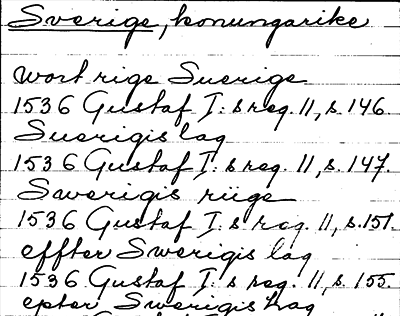 Sverige, konungarike
wort rige Suerige
1536 Gustaf I:s reg. 11, s. 146.
Suerigis lag
1536 Gustaf I:s reg. 11, s. 147.
Swerigis riige
1536 Gustaf I:s reg. 11, s. 151.
effter Swerigis lag
1536 Gustaf I:s reg. 11, s. 155
epter Swerigis Lag